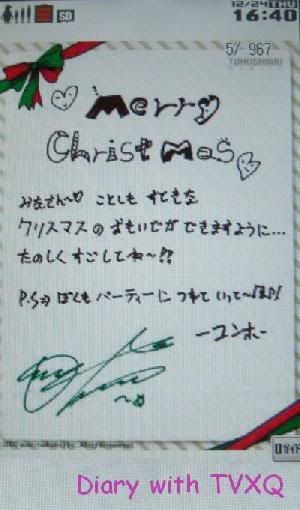 12/24 THU
16:40
57/967
TOHOSHINKI
Merry
Christmas
みなさん〜♡ ことしも すてきな
クリスマスの おもいでが できますように...
たのしく すごしてね〜!?
P.S⇒ ぼくも パーティーに つれて いって〜
ーユンホー
Diary with TVXQ